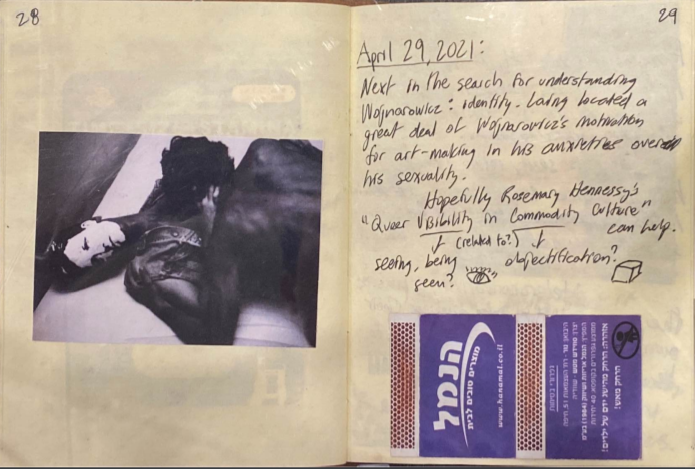 28
29
April 29, 2021:
Next in the search for understanding
Wojnarowicz: identity. Laing located a
great deal of Wojnarowicz's motivation
for art-making in his anxieties over
his sexuality.
Hopefully Rosemary Hennessy's
"Queer Visibility in Commodity Culture"
can help.
(related to?)
seeing, being
seen?
objectification?
הנמל
מוצרים טובים לבית
www.hanamal.co.il